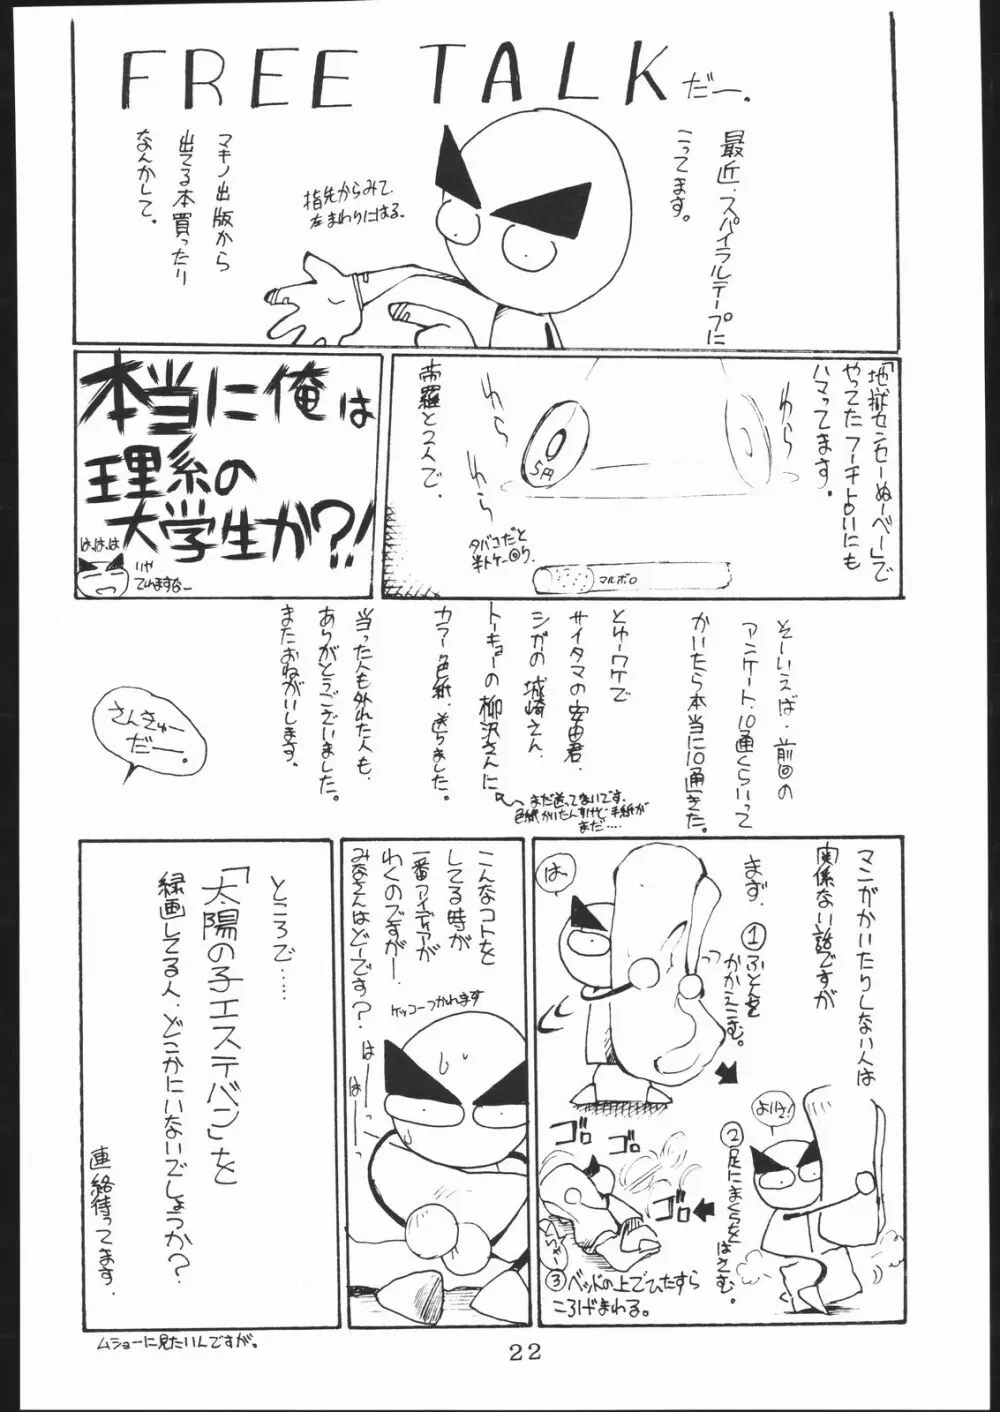 FREE TALKだー.
最近、スパイラルテープに
こってます。
指先からみて
左まわりにはる。
マキノ出版から
出てる本買ったり
なんかして。
「地獄センセーぬーべー」で
やってたフーチよいにも
ハマってます。
わら
わら
わら
5円
帝羅と2人で、
タバコだと
マルボロ
本当に俺は
理系の
大学生か?!
は、は、は
いや
てれますなー
そーいえば、前回の
アンケート、10通くらいって
かいたら本当に10通きた。
とゆーワケで
サイタマの安由君、
シガの城崎さん、
トーキョーの柳沢さんに
カラー色紙、送りました。
まだ送ってないです。
色紙かいたんすけど手紙が
まだ….
当った人も外れた人も、
ありがとうございました。
またおねがいします。
さんきゅー
だー。
マンガかいたりしない人は
関係ない話ですが
まず、①ふとんを
かかえこむ。
は、
よいけ!
②足にまくらを
はさむ。
ゴロ
ゴロ
ゴロ
③ベッドの上でひたすら
ころげまわる。
こんなコトを
してる時が
一番アイディアが
わくのですがー、
みなさんはどーです?
ケッコーつかれます
はーーっ
はーー
ところで……
「太陽の子エステバン」を
録画してる人、どこかにいないでしょうか?
連絡待ってます.
ムショーに見たいんですが。
22